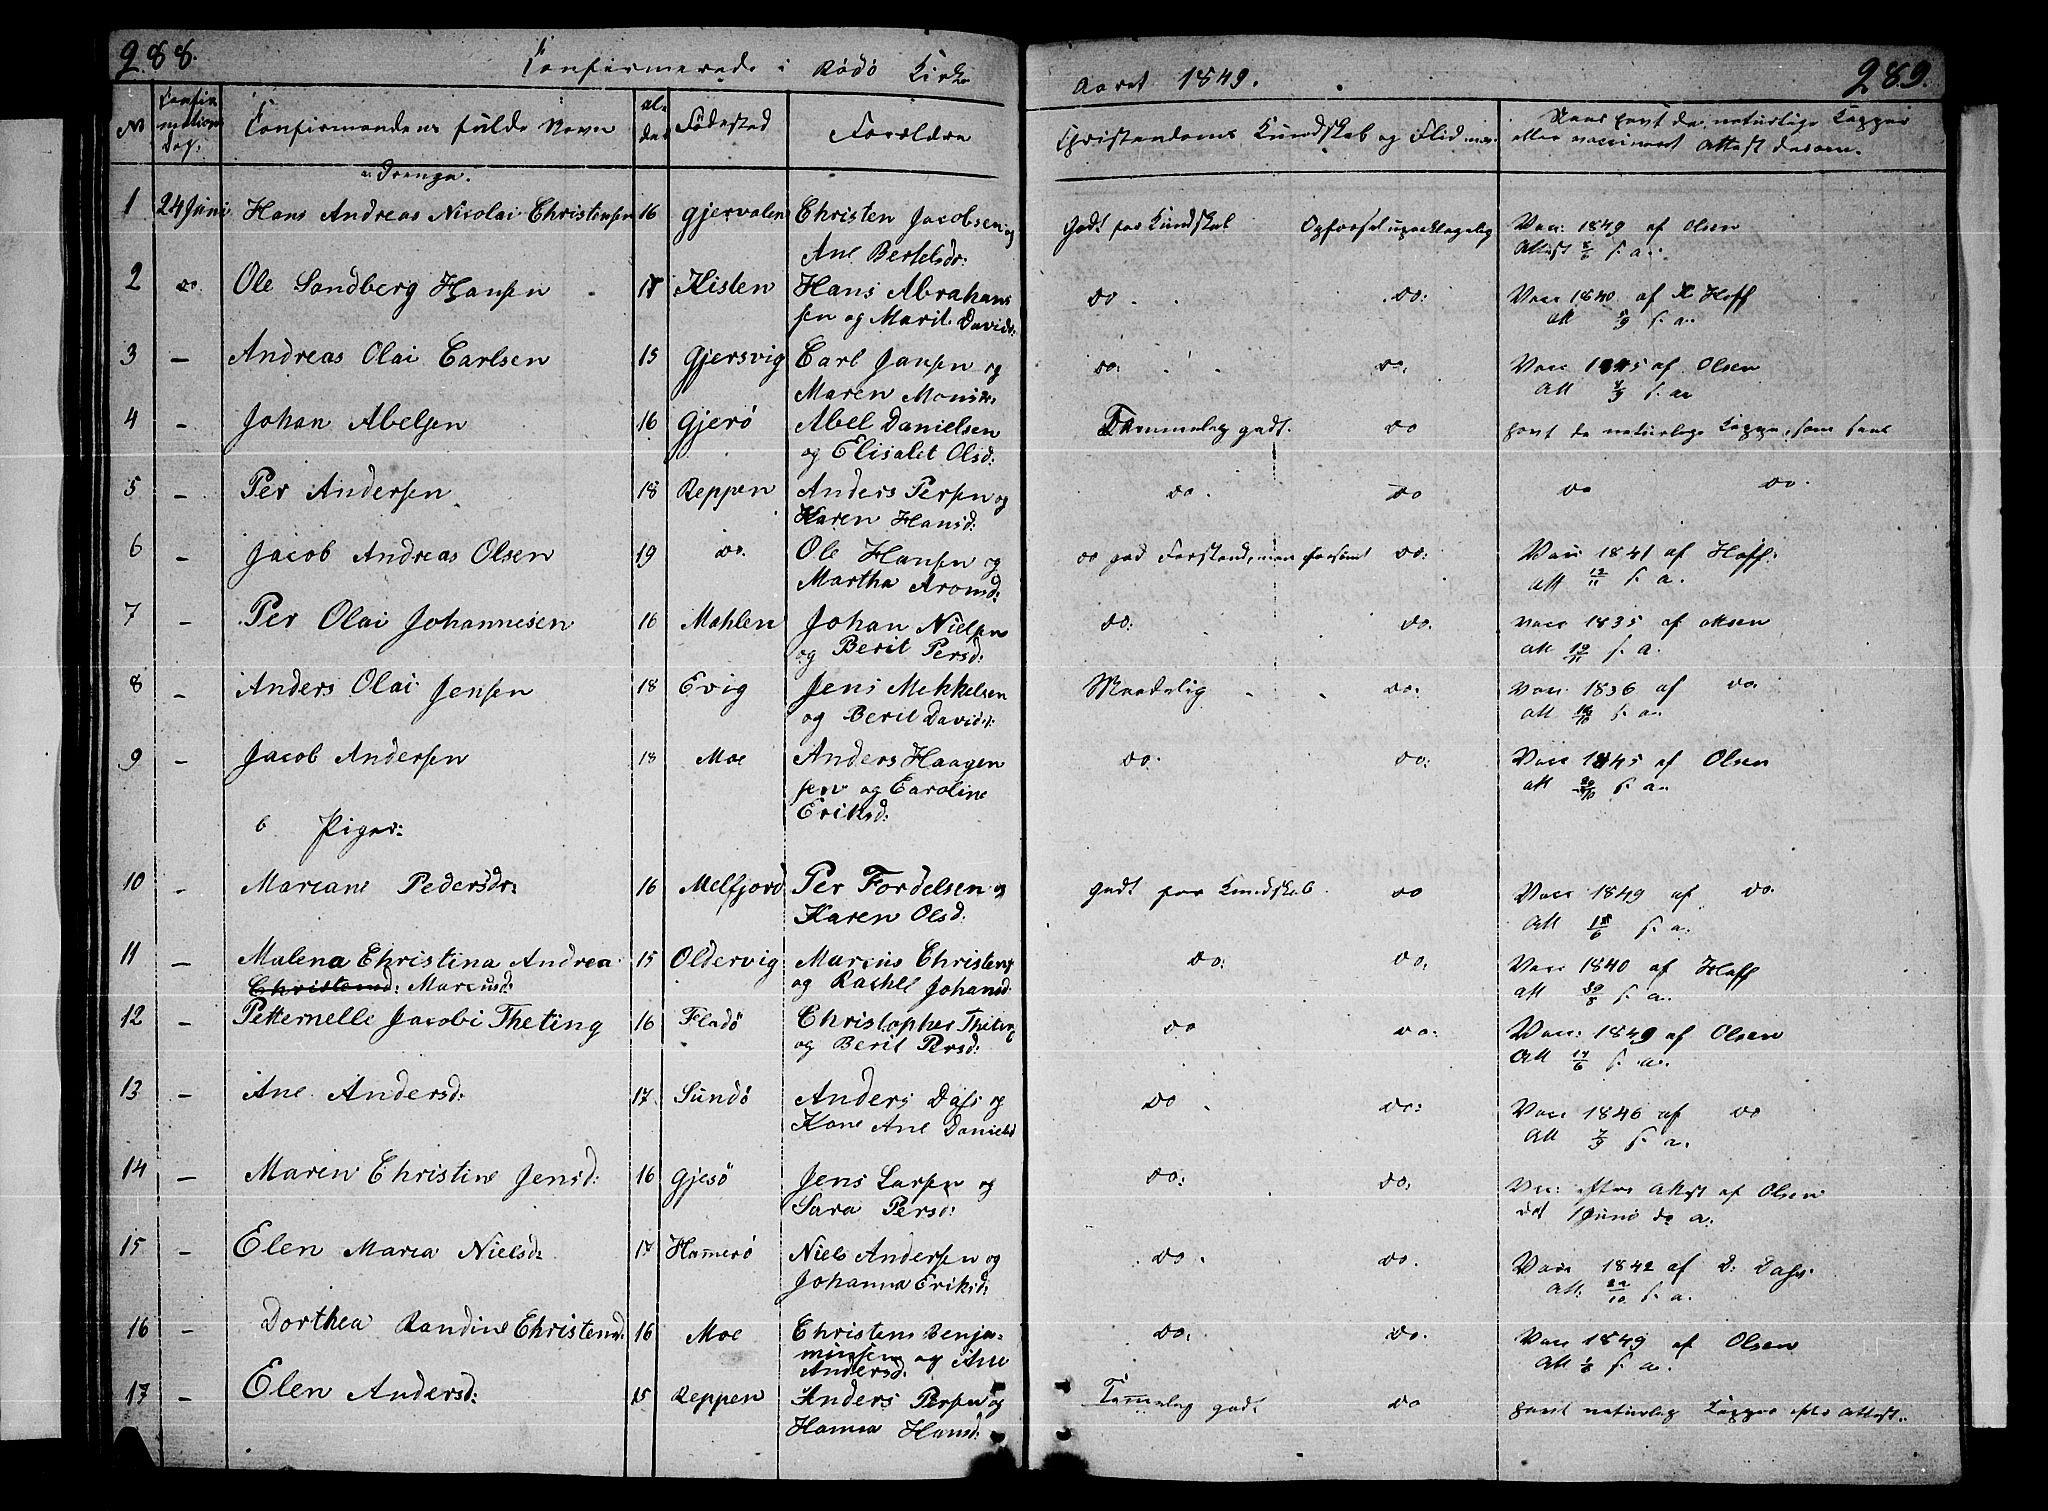 288.
Confirmerede i Rödö Kirke
Aaret 1849.
289.
No
Confirmations Dag.
Confirmandens fulde Navn
Alder
Födested
Forældre
Christendoms Kundskab og Flid
Naar havt de naturlige Kopper
eller vaccineret Attest derom.
a. Drenge.
1 24 Juni Hans Andreas Nicolai Christensen 16 Gjervalen Christen Jacobsen og
Ane Bertelsdr:
Godt for Kundskab Opförsel upaaklagelig Vacc: 1849 af Olsen
Attest 8/6 s. a.
2 do Ole Sandberg Hansen 18 Kisten Hans Abraham
sen og Marit Davids:
do do: Vacc 1840 af Hoff
Att s. a.
3 — Andreas Olai Carlsen 15 Gjersvig Carl Jansen og
Maren Monsdr:
do: do: Vacc 1845 af Olsen
Att s. a.
4 — Johan Abelsen 16 Gjerö Abel Danielsen
og Elisabet Olsd:
Temmelig godt. do havt de naturlige Kopper, som sees
5 — Per Andersen 18 Reppen Anders Persen og
Karen Hansd:
do. do do do.
6 — Jacob Andreas Olsen 19 do. Ole Hansen og
Martha Aronsd:
do god Forstand, men forsömt do: Vacc 1841 af Hoff:
Att 12/11 s. a.
7 — Per Olai Johannesen 16 Mahlen Johan Nielsen
og Berit Persd:
do: do. vacc 1835 af Olsen
att 10/11 s. a.
8 — Anders Olai Jensen 18 Evig Jens Mekkelsen
og Berit Davids:
Maadelig do: vacc: 1836 af do.
att s. a.
9 — Jacob Andersen 18 Moe Anders Haagen
sen og Caroline
Eriksd:
do. do: Vacc 1845 af Olsen
att s. a.
b Piger:
10 — Mariane Pedersdr: 16 Melfjord Per Fordelsen og
Karen Olsd:
godt for Kundskab do Vacc 1849 af do.
Att 15/6 s. a.
11 — Malena Christina Andrea 15 Oldervig Marcus Christens:
Christensd: Marcusd: og Rachel Johansd
do: do. Vacc 1840 af Hoff
att 30/8 s. a.
12 — Petternelle Jacobi Theting 16 Fladö Christopher Theting
og Berit Persd:
do do: Vacc: 1849 af Olsen
Att 14/6 s. a.
13 — Ane Andersd: 17 Sundö Anders Dass og
Kone Ane Danielsd
do do: Vacc 1846 af do
Att 7/9 s. a.
14 — Maren Christine Jensd: 16 Gjesö Jens Larsen og
Sara Persd:
do: do: Vac: efter Attest af Olsen
dat 1 Juni d. a.
15 — Elen Maria Nielsd: 17 Hamerö Niels Andersen og
Johanna Eriksd:
do. do. Vacc 1842 af D: Dass.
Att: s. a.
16 — Dorthea Randine Christensd: 16 Moe Christens Benja-
minsen og Ane
Andersd:
do: do. Vacc 1849 af Olsen
Att s. a.
17 — Elen Andersd: 15 Reppen Anders Persen og
Hanna Hansd:
Temmelig godt do havt naturlig Kopper efter Attest.